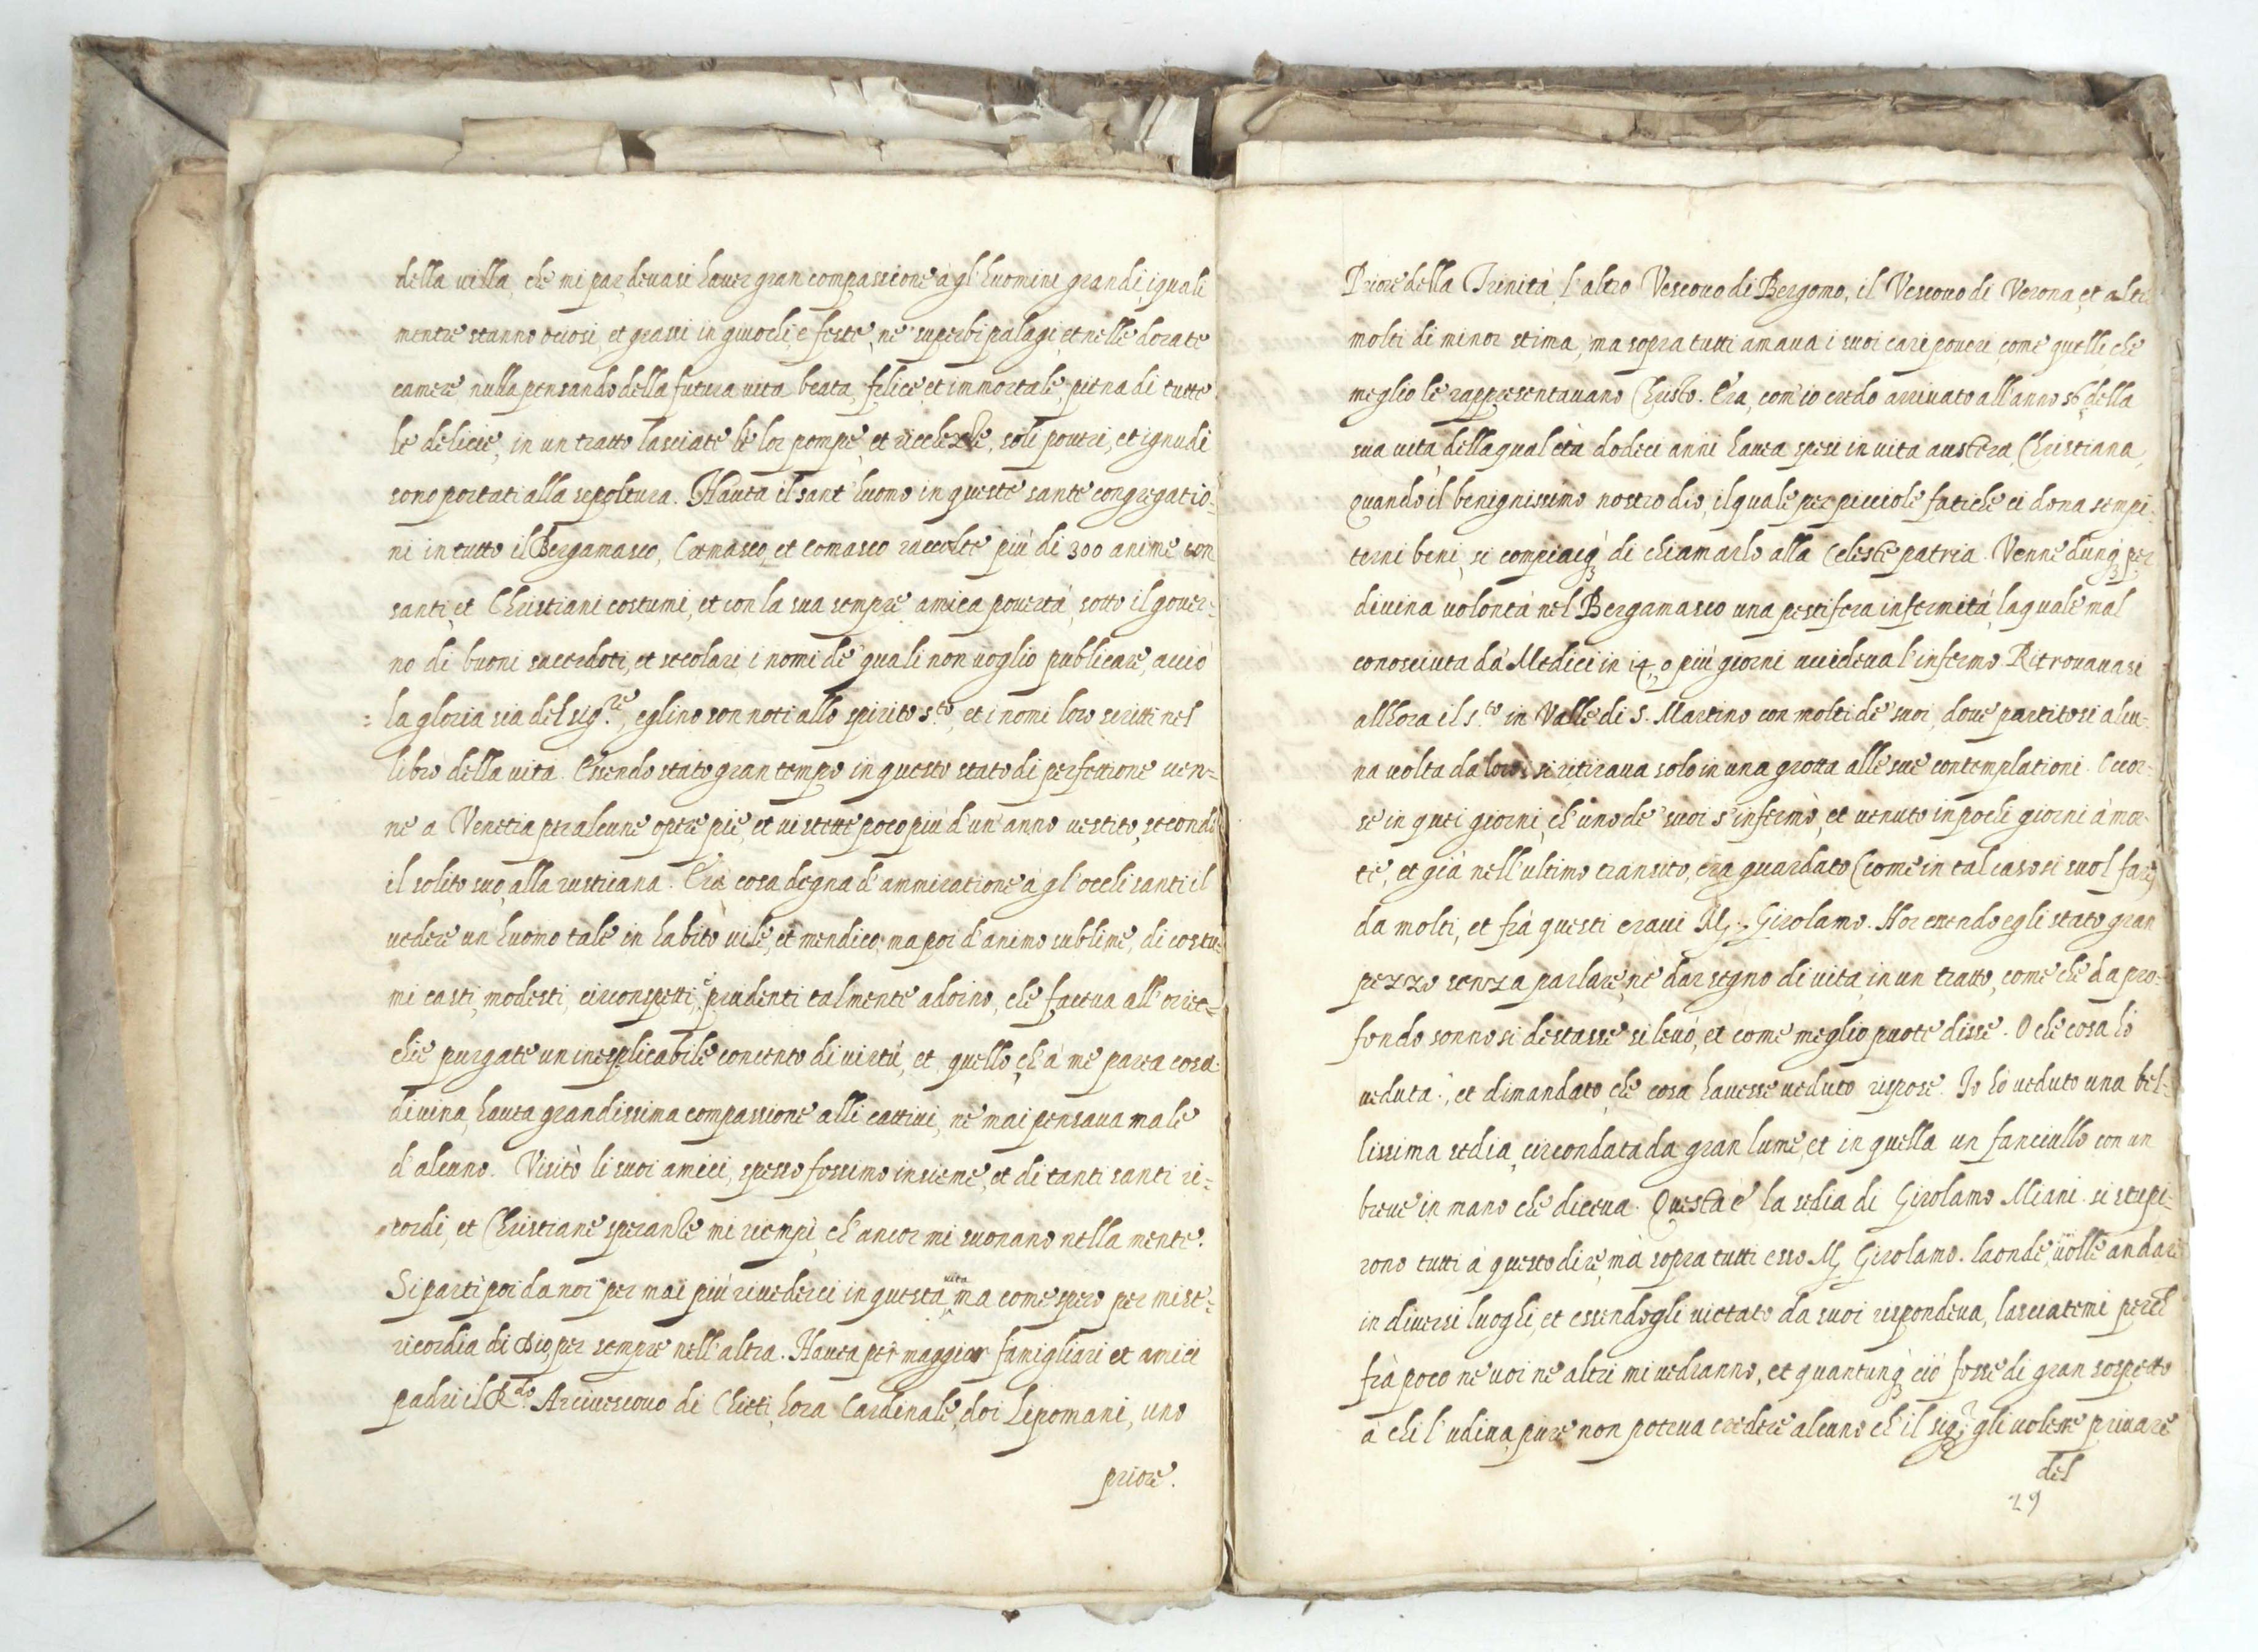 della villa, che mi par, devasi haver gran compassione à gl'huomini grandi, i quali
mentre stanno otiosi, et grassi in giuochi, e feste, ne' superbi palagi, et nelle dorate
camere, nulla pensando della futura vita beata, felice, et immortale, piena di tutte
le delicie, in un tratto lasciate le lor pompe, et ricchezze, soli poveri, et ignudi
sono portati alla sepoltura. Havea il sant'huomo in queste sante congregatio=
ni in tutto il Bergamasco, Cremasco, et Comasco raccolte più di 300 anime con
santi, et Christiani costumi, et con la sua sempre amica povertà, sotto il gover=
no di buoni sacerdoti, et secolari i nomi de' quali non voglio publicare, acciò
la gloria sia del sig.re, eglino son noti allo spirito s.to, et i nomi loro scritti nel
libro della vita. Essendo stato gran tempo in questo stato di perfettione ven=
ne a Venetia per alcune opere pie, et vi stette poco più d'un'anno vestito, secondo
il solito suo, alla rusticana. Era cosa degna d'ammiratione à gl'occhi santi il
vedere un huomo tale in habito vile, et mendico, ma poi d'animo sublime, di costu=
mi casti, modesti, circonspetti, e prudenti talmente adorno, che faceva all'orrec=
chie purgate un inesplicabile concento di virtù, et quello, ch'à me parea cosa
divina, havea grandissima compassione alli cattivi, ne mai pensava male
d'alcuno. Visitò li suoi amici, spesso fossimo insieme, et di tanti santi ri=
cordi, et Christiane speranze mi riempì, ch'ancor mi suonano nella mente.
Si partì poi da noi per mai più rivederci in questa vita, ma come spero per mise=
ricordia di Dio, per sempre nell'altra. Havea per maggior famigliari et amici
padri il R.do Arcivescovo di Chieti, hora Cardinale, doi Lipomani, uno
priore.
Priore della Trinità, l'altro Vescovo di Bergomo, il Vescovo di Verona, et altri
molti di minor stima, ma sopra tutti amava i suoi cari poveri, come quelli che
meglio le rappresentavano Christo. Era, com'io credo arrivato all'anno 56 della
sua vita della qual età dodeci anni havea spesi in vita austera, Christiana,
quando il benignissimo nostro dio, il quale per picciole fatiche ci dona sempi=
terni beni, si compiacq; di chiamarlo alla Celeste patria. Venne dunq; per
divina volontà nel Bergamasco una pestifera infermità, la quale mal
conosciuta dà Medici in 14, o più giorni uccideva l'infermo. Ritrovavasi
allhora il s.to in Valle di S. Martino con molti de' suoi, dove partitosi alcu=
na volta da loro, si ritirava solo in una grotta alle sue contemplationi. Occor=
se in quei giorni, ch'uno de' suoi s'infermò, et venuto in pochi giorni à mor=
te, et già nell'ultimo transito, era guardato (come in tal caso si suol fare)
da molti, et frà questi eravi M. Girolamo. Hor essendo egli stato gran
pezzo senza parlare, nè dar segno di vita, in un tratto, come che da pro=
fondo sonno si destasse si levò, et come meglio puote disse. O che cosa hò
veduta, et dimandato, che cosa havesse veduto rispose. Io hò veduto una bel=
lissima sedia, circondata da gran lume, et in quella un fanciullo con un
breve in mano che diceva. Questa è la sedia di Girolamo Miani. si stupi=
rono tutti à questo dire, mà sopra tutti esso M. Girolamo. laonde, volle andare
in diversi luoghi, et essendogli vietato da suoi rispondeva, lasciatemi perch
frà poco ne voi ne altri mi vedranno, et quantunq; ciò fosse di gran sospetto
à chi l'udiva, pure non poteva credere alcuno ch'il sig.r gli volesse privare
del
29